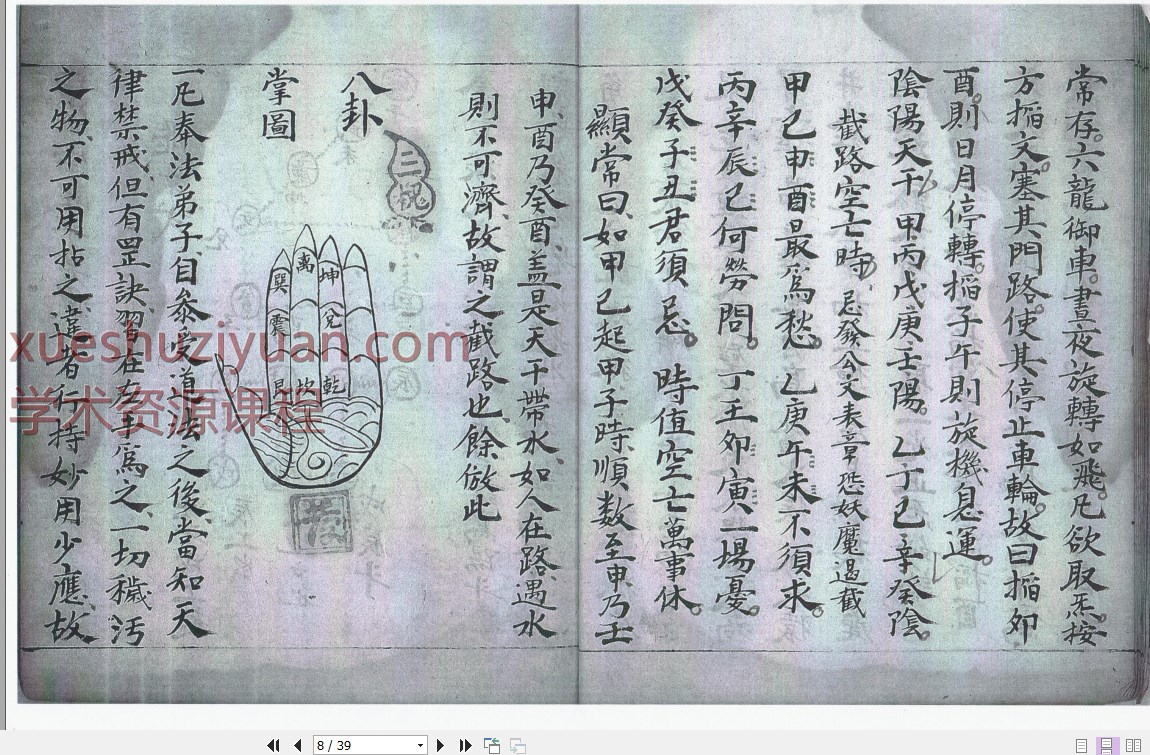 常存。六龍御車。晝夜旋轉如飛。凡欲取炁按
方搯文。塞其門路。使其停止車輪。故曰搯卯
酉。則日月停轉。搯子午則旋機息運。
陰陽天干 甲丙戊庚壬陽。乙丁己辛癸陰。
截路空亡時 忌發公文表章恐妖魔遏截
甲己申酉最爲愁。 乙庚午未不須求。
丙辛辰巳何勞問。 丁壬卯寅一塲憂。
戊癸子丑君須忌。 時值空亡萬事休。
顯常曰、如甲己起甲子時、順数至申、乃壬
申、酉乃癸酉、盖是天干帶水、如人在路、遇水
則不可濟、故謂之截路也、餘倣此
八卦
掌圖
離
坤
巽
震
兌
艮
坎
乾
一凡奉法弟子、自叅受道法之後、當知天
律禁戒但有罡訣習在左手爲之、一切穢污
之物、不可用拈之、違者行持妙用少應、故
xueshuziyuan.com
学术资源课程
8 / 39